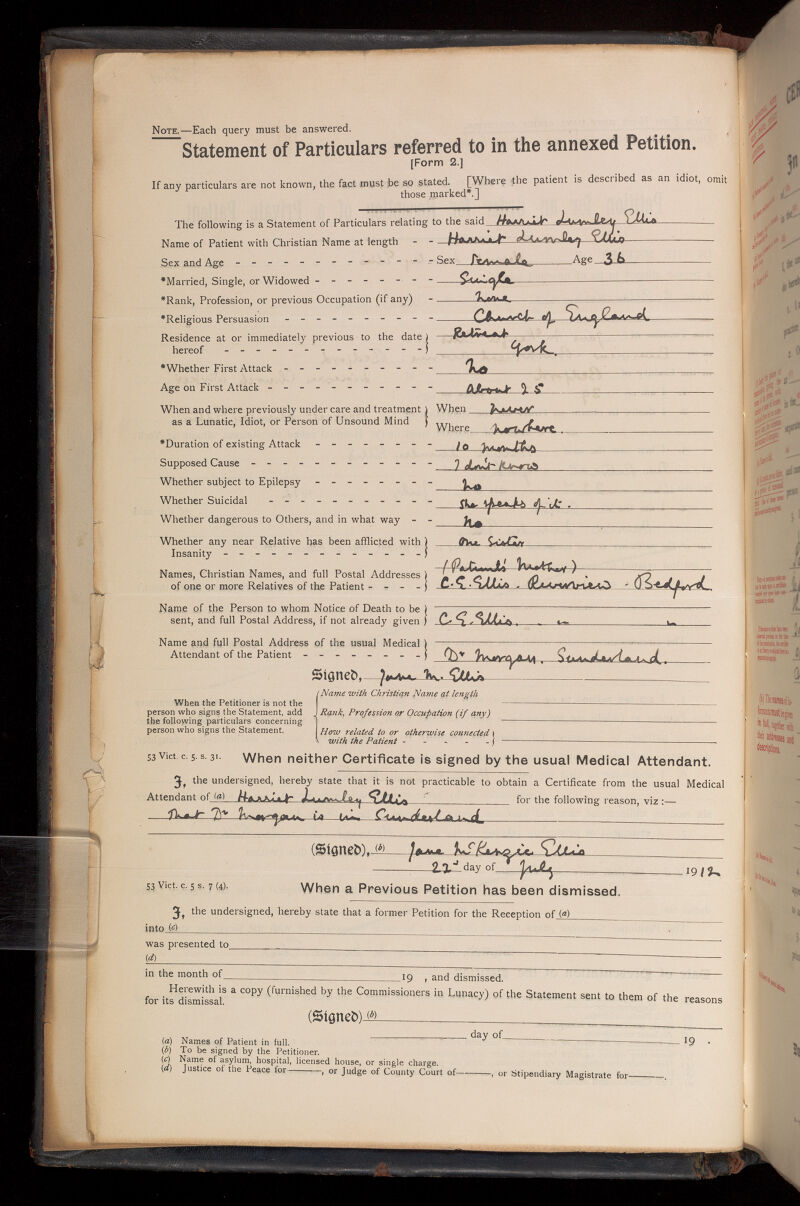 NOTE.—Each query must be answered.
Statement of Particulars referred to in the annexed Petition.
[Form 2.]
If any particulars are not known, the fact must be so stated. [Where the patient is described as an idiot, omit
those marked*.]
The following is a Statement of Particulars relating to the said Harriet Lumley Ellis
Name of Patient with Christian Name at length - - Harriet Lumley Ellis
Sex and Age - - - - - - - - - - - - Sex Female Age 36
*Married, Single, or Widowed - - - - - - - Single
*Rank, Profession, or previous Occupation (if any) - None
*Religious Persuasion - - - - - - - - - Church of England
Residence at or immediately previous to the date Retreat
hereof - - - - - - - - - - - - - York.
*Whether First Attack - - - - - - - - - No
Age on First Attack - - - - - - - - - - about 25
When and where previously under care and treatment When never
as a Lunatic, Idiot, or Person of Unsound Mind Where nowhere.
*Duration of existing Attack - - - - - - - 10 months
Supposed Cause - - - - - - - - - - - I don't know
Whether subject to Epilepsy - - - - - - - no
Whether Suicidal - - - - - - - - - - She speaks of it.
Whether dangerous to Others, and in what way - - No
Whether any near Relative has been afflicted with One Sister
Insanity - - - - - - - - - - - - -
(Patients' Mother)
Names, Christian Names, and full Postal Addresses
of one or more Relatives of the Patient - - - - C. E. Ellis. Riverview - Bedford.
Name of the Person to whom Notice of Death to be
sent, and full Postal Address, if not already given C. E. Ellis. " "
Name and full Postal Address of the usual Medical
Attendant of the Patient - - - - - - - - Dr Morgan. Sunderland.
Signed, Jane M. Ellis
When the Petitioner is not the
person who signs the Statement, add
the following particulars concerning
person who signs the Statement.
Name with Christian Name at length
Rank, Profession or Occupation (if any)
How related to or otherwise connected
with the Patient - - - - - -
53 Vict. c. 5. s. 31. When neither Certificate is signed by the usual Medical Attendant.
I, the undersigned, hereby state that it is not practicable to obtain a Certificate from the usual Medical
Attendant of (a) Harriet Lumley Ellis for the following reason, viz:—
That Dr Morgan is in Sunderland
(Signed), (b) Jane McKenzie Ellis
22nd day of July 1912
53 Vict. c. 5 s. 7 (4). When a Previous Petition has been dismissed.
I, the undersigned, hereby state that a former Petition for the Reception of (a)
into (c)
was presented to
(d)
in the month of 19 , and dismissed.
Herewith is a copy (furnished by the Commissioners in Lunacy) of the Statement sent to them of the reasons
for its dismissal.
(Signed) (b)
day of 19 .
(a) Names of Patient in full.
(b) To be signed by the Petitioner.
(c) Name of asylum, hospital, licensed house, or single charge.
(d) Justice of the Peace for———, or Judge of County Court of———, or Stipendiary Magistrate for———.